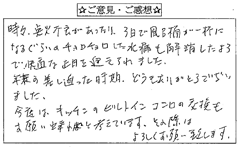 ☆ご意見・ご感想☆
時々、具合不良があったり、3日で風呂桶が一杯に
なるぐらいのチョロチョロした水漏も解消したよう
で快適な正月を迎えられました。
年末の差し迫った時期、どうもありがとうござい
ました。
今後は、キッチンのビルトインコンロの交換も
お願い出来ればと考えています。その際は
よろしくお願い致します。